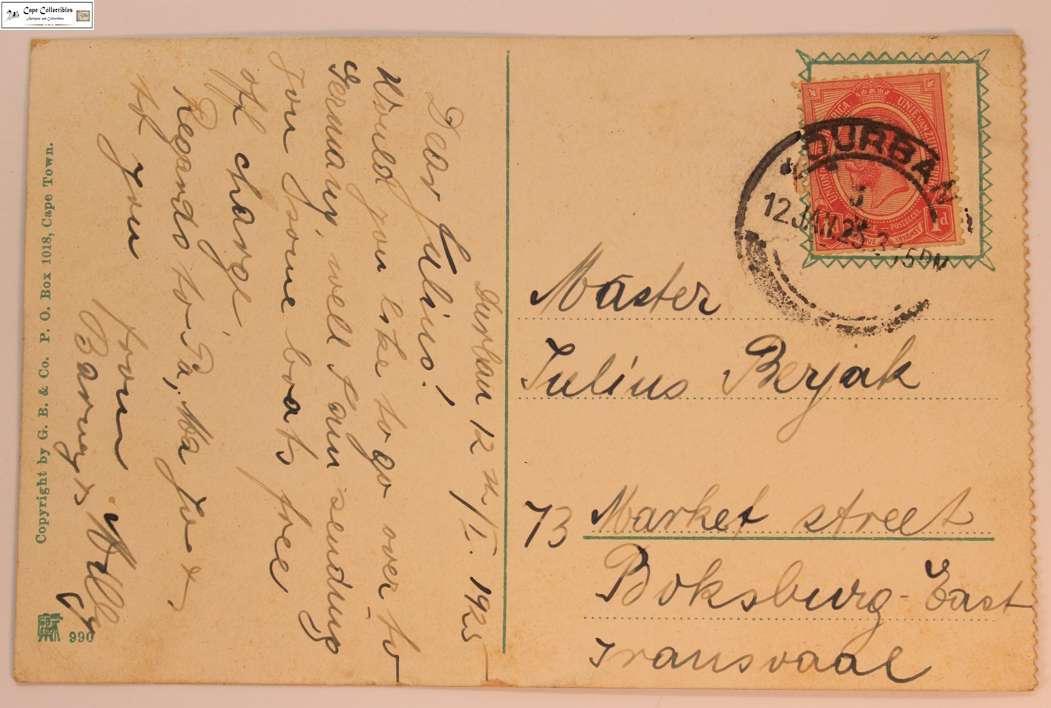 Cape Collectibles
Antiques and Collectibles
Durban 12th /I. 1925
Dear Julius!
Would you like to go over to
Germany well I am sending
you some boats free
of charge
Regards to Pa, Ma Jve &
of you
from
Barney & Willy
Copyright by G. B. & Co. P. O. Box 1018, Cape Town.
990
DURBAN
5
12 JAN 25 3 15 PM
1d
Master
Julius Berjak
73 Market street
Boksburg-East
Transvaal